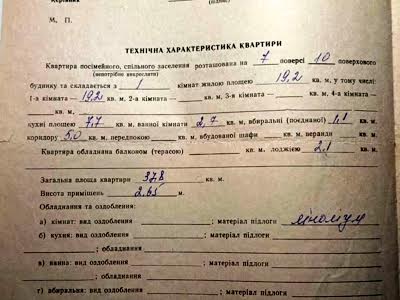 М. П.
ТЕХНІЧНА ХАРАКТЕРИСТИКА КВАРТИРИ
Квартира посімейного, спільного заселення розташована на 7 поверсі 10 поверхового
(непотрібне викреслити)
будинку та складається з 1 кімнат жилою площею 19,2 кв. м, у тому числі:
1-а кімната — 19,2 кв. м, 2-а кімната — кв. м, 3-я кімната — кв. м, 4-а кімната —
кв. м,
кухні площею 7,7 кв. м, ванної кімнати 2,7 кв. м, вбиральні (поєднаної) 1,1 кв. м,
коридору 5,0 кв. м, передпокою — кв. м, вбудованої шафи кв. м, веранди кв. м.
Квартира обладнана балконом (терасою) кв. м, лоджією 2,1 кв. м.
Загальна площа квартири 37,8 кв. м.
Висота приміщень 2.65 м.
Обладнання та оздоблення:
а) кімнат: вид оздоблення ; матеріал підлоги ліноліум
б) кухня: вид оздоблення ; матеріал підлоги
; обладнання
в) ванна: вид оздоблення ; матеріал підлоги
; обладнання
г) вбиральня: вид оздоблення ; матеріал підлоги